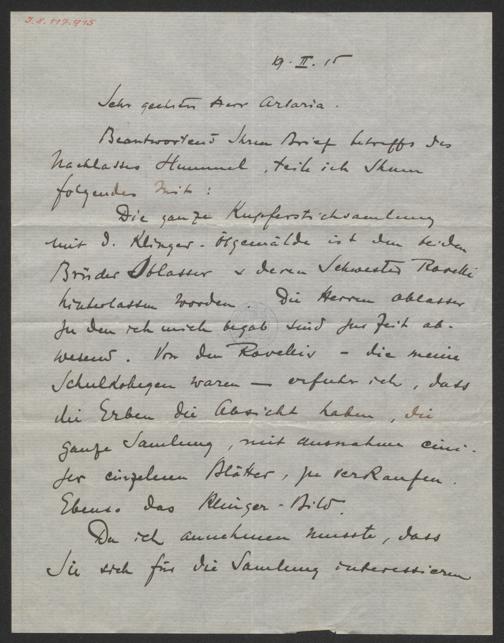 J.N. 117.915
19. II. 15
Sehr geehrter Herr Artaria.
Beantwortend Ihren Brief betreffs des
Nachlasses Hummel, teile ich Ihnen
folgendes mit:
Die ganze Kupferstichsamlung
mit d. Klinger-Ölgemälde ist den beiden
Brüder Oblasser u deren Schwester Ravelli
hinterlassen worden. Die Herren Oblasser
zu den ich mich begab sind zur Zeit ab-
wesend. Von den Ravellis – die meine
Schulkolegen waren – erfuhr ich, dass
die Erben die Absicht haben, die
ganze Samlung, mit ausnahme eini-
ger einzelnen Blätter, zu verkaufen.
Ebenso das Klinger-Bild.
Da ich annehmen musste, dass
Sie sich für die Samlung interessieren